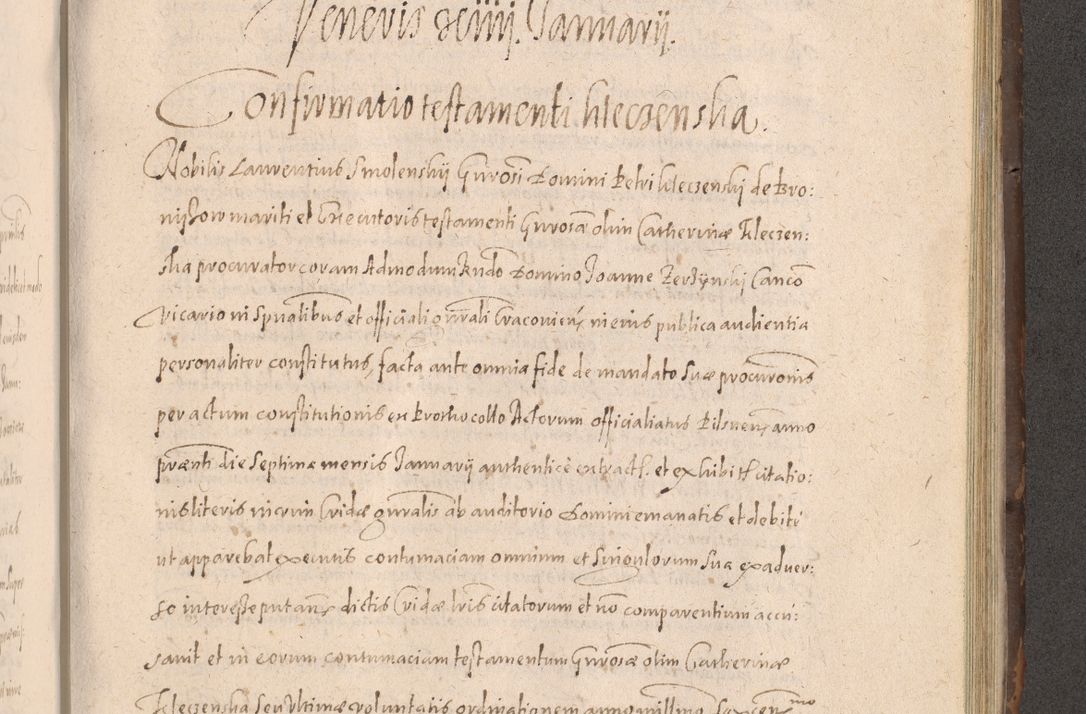 Veneris xiiij. Januarij.
Confirmatio testamenti kleczenska.
Nobilis Laurentius Smolenskij Gnrosi Domini Petri kleczenskij de Bro:
nijkow mariti et Executoris testamenti Gnrosae olim Catherinae Kleczen:
ska procurator coram Admodum Rndo Domino Joanne Zerzynskij Canco
Vicario in Spualibus et officiali gnrali Cracovien in eius publica audientia
personaliter constitutus, facta ante omnia fide de mandato suae procuronis
per actum constitutionis ex Prothocollo Actorum officialiatus Pilsnen anno
praenti die Septima mensis Januarij authentice extract. et exhibit citatio:
nis literis in crim Cridae gnralis ab auditorio Domini emanatis et debite
ut apparebat executis contumaciam omnium et singulorum sua exadver:
so interesse putan dictis Cridae lris citatorum et non comparentium accu:
savit et in eorum contumaciam testamentum Gnrosae olim Catherinae
Kleczenska seu ultimae voluntatis ordinationem anno millmo Sexcenmo